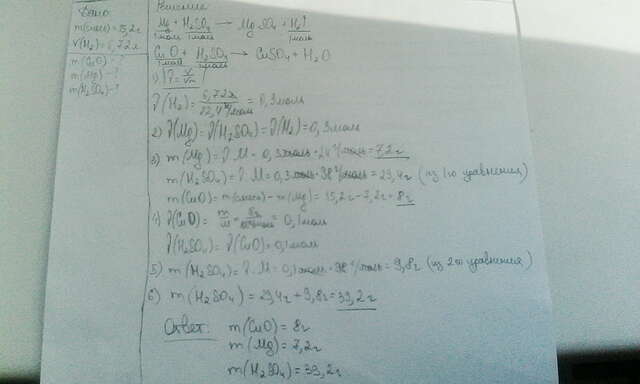 Дано:
m(смеси) = 15,2г
V(H₂) = 6,72л
m(CuO) - ?
m(Mg) - ?
m(H₂SO₄) - ?
Решение
Mg + H₂SO₄ → MgSO₄ + H₂↑
1моль 1моль 1моль
CuO + H₂SO₄ → CuSO₄ + H₂O
1моль 1моль
1) ν = V/Vm
ν(H₂) = 6,72л / 22,4 л/моль = 0,3моль
2) ν(Mg) = ν(H₂SO₄) = ν(H₂) = 0,3моль
3) m(Mg) = ν · M = 0,3моль · 24г/моль = 7,2г
m(H₂SO₄) = ν · M = 0,3моль · 98г/моль = 29,4г (из 1го уравнения)
m(CuO) = m(смеси) - m(Mg) = 15,2г - 7,2г = 8г
4) ν(CuO) = m/M = 8г / = 0,1моль
ν(H₂SO₄) = ν(CuO) = 0,1моль
5) m(H₂SO₄) = ν · M = 0,1моль · 98г/моль = 9,8г (из 2го уравнения)
6) m(H₂SO₄) = 29,4г + 9,8г = 39,2г
Ответ: m(CuO) = 8г
m(Mg) = 7,2г
m(H₂SO₄) = 39,2г